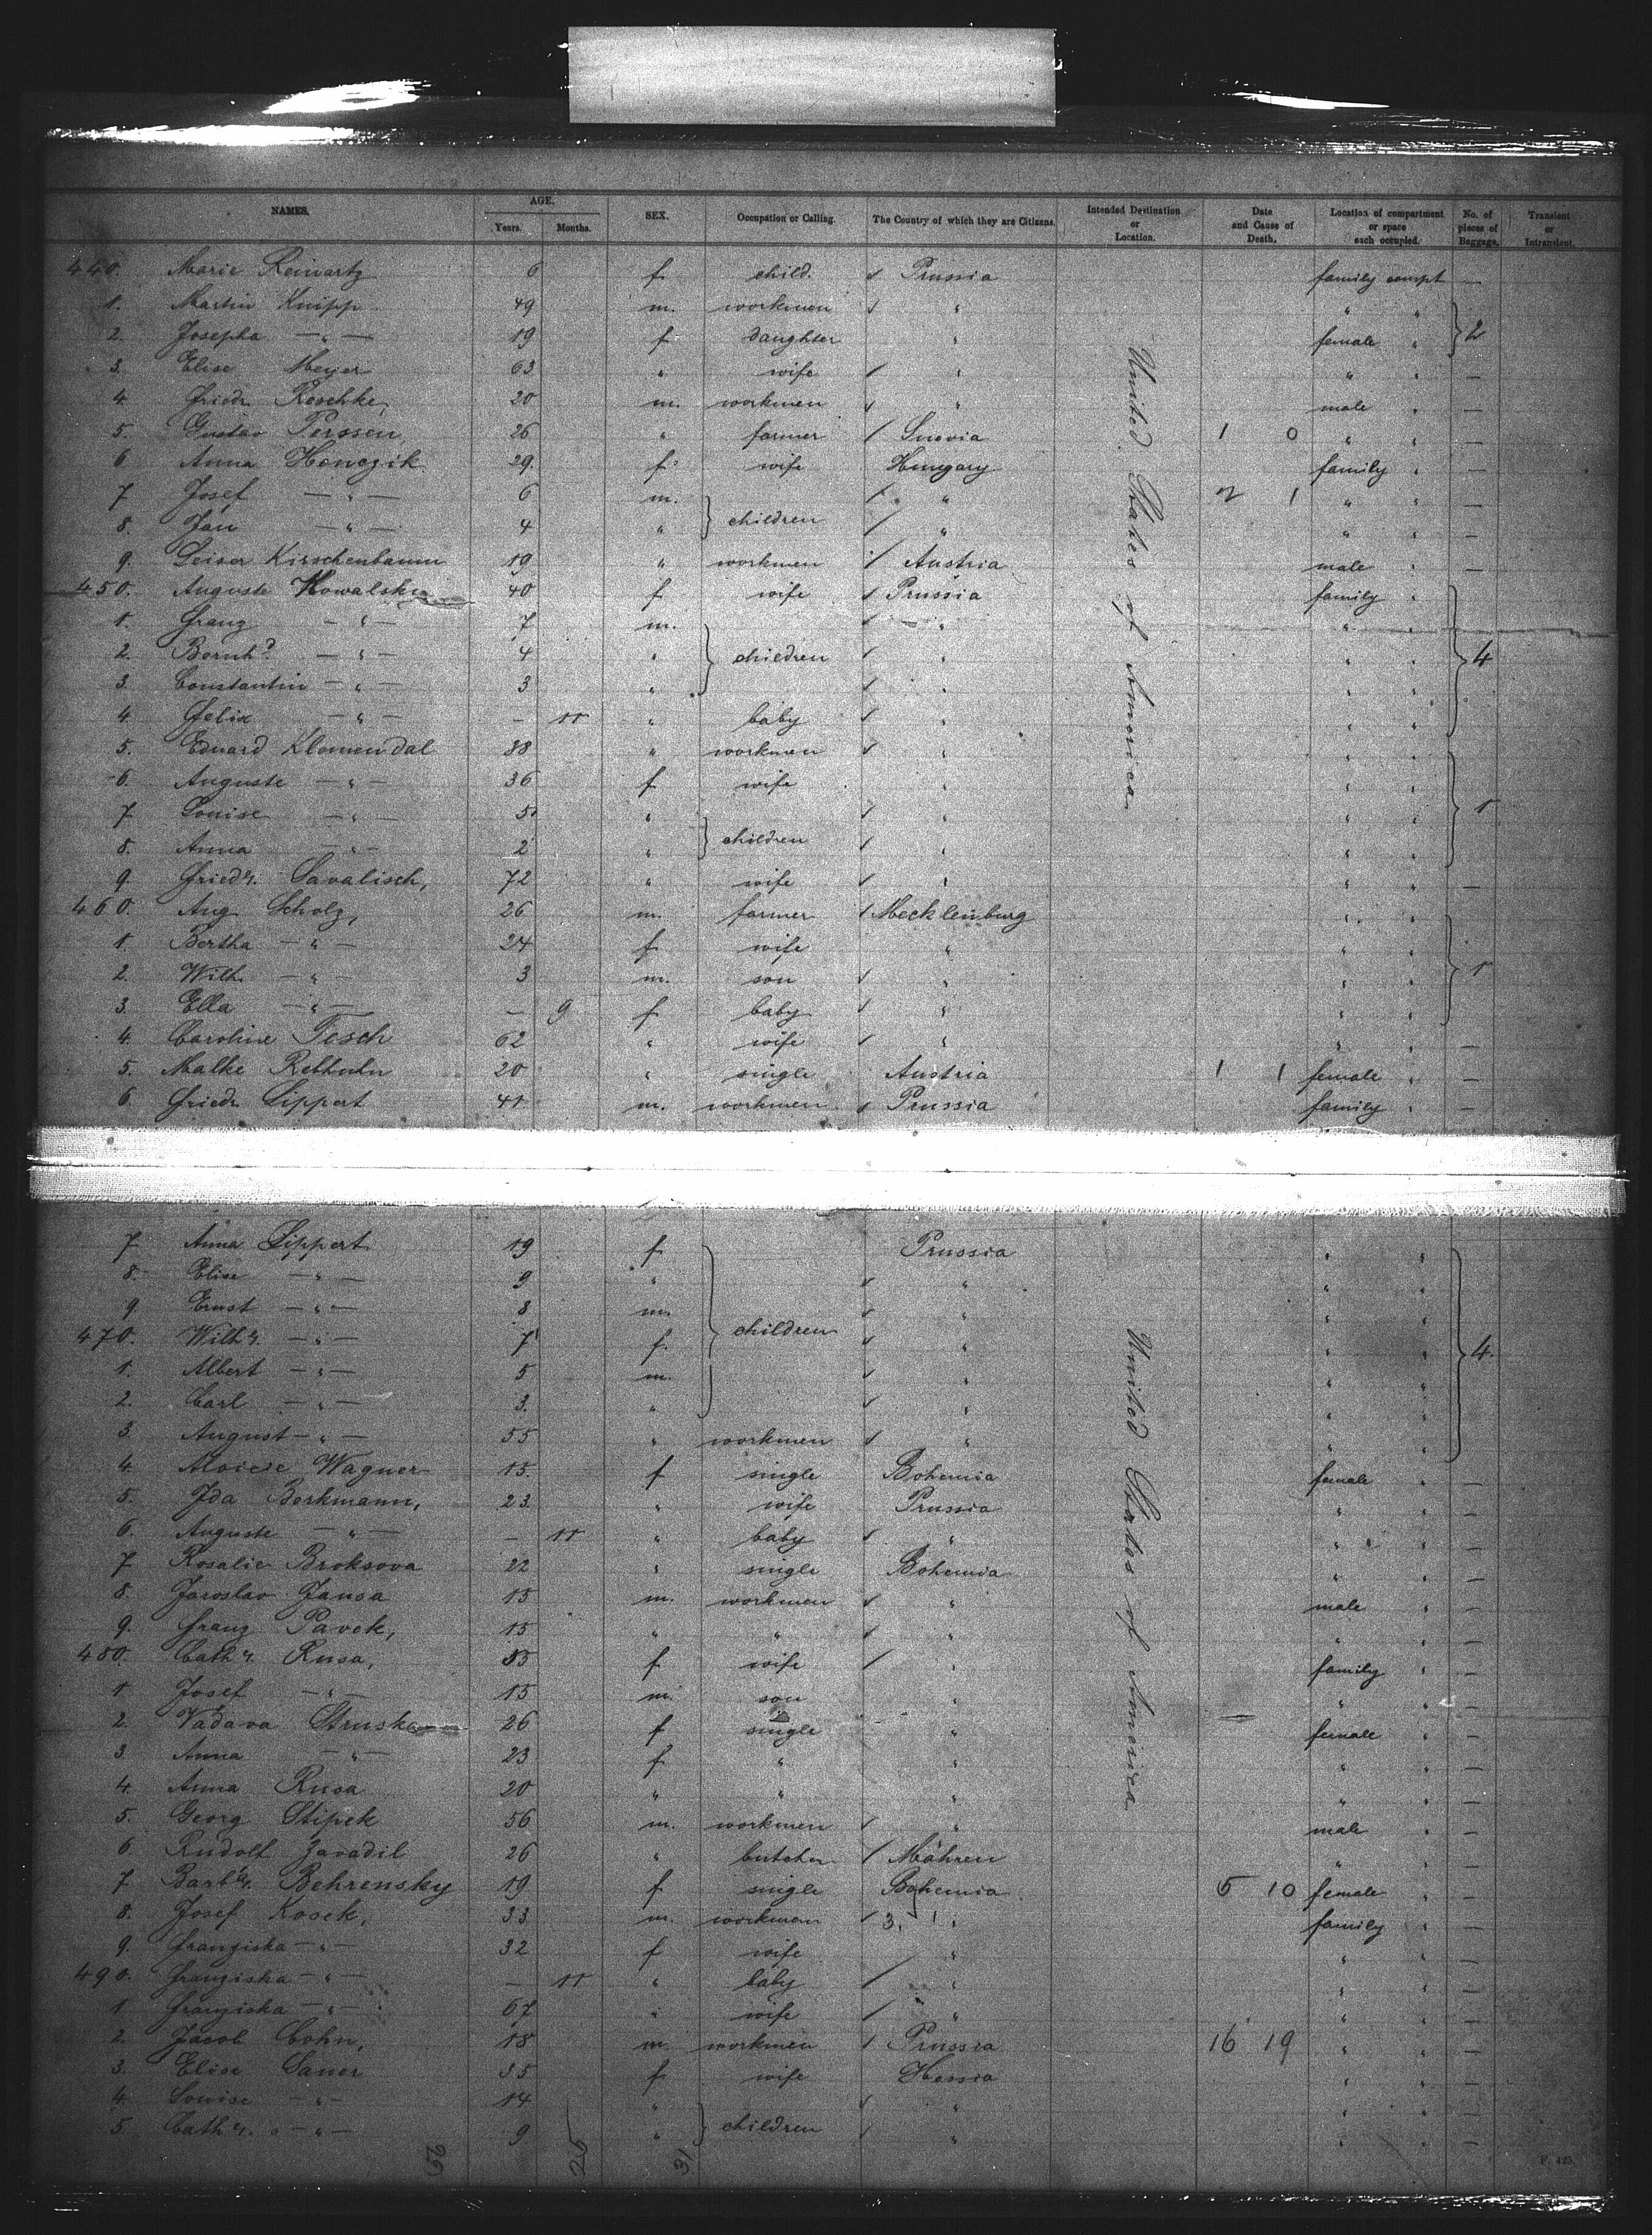 NAMES. AGE. Years. Months. SEX. Occupation or Calling. The Country of which they are Citizens. Intended Destination or Location. Date and Cause of Death. Location of compartment or space each occupied. No. of pieces of Baggage. Transient or Intransient.
440. Marie Reinartz 6 f child. Prussia family compt —
1. Martin Knipp 49 m. workmen " " "
2. Josepha — " — 19 f daughter " female " } 2
3. Elise Meyer 63 " wife " " " —
4. Friedr. Reschke, 20 m. workmen " male " —
5. Gustav Perssen 26 " farmer Suevia 1 0 " " —
6. Anna Henczik 29. f. wife Hungary family " —
7. Josef — " — 6 m. " 2 1 " " —
8. Jan — " — 4 " } children " " " —
9. Leiser Kirschenbaum 19 " workmen Austria male " —
450. Auguste Kowalski 40 f wife Prussia family "
1. Franz — " — 7 m. " " "
2. Bernhd. — " — 4 " } children " " " } 4
3. Constantin — " — 3 " " " "
4. Felix — " — — 11 " baby " " "
5. Eduard Klemendal 38 " workmen " " "
6. Auguste — " — 36 f wife " " "
7. Louise — " — 5 " " " " } 1
8. Anna — " — 2 " } children " " "
9. Friedr. Savalisch, 72 " wife " " " —
460. Aug. Scholz, 26 m. farmer Mecklenburg " "
1. Bertha — " — 24 f wife " " "
2. Wilh. — " — 3 m. son " " " } 1
3. Ella — " — — 9 f baby " " "
4. Caroline Tesch 62 " wife " " " —
5. Malke Rebhuhn 20 " single Austria 1 1 female " —
6. Friedr. Lippert 41 m. workmen Prussia family " —
United States of America
7. Anna Lippert 19 f Prussia " "
8. Elise — " — 9 " " " "
9. Ernst — " — 8 m. " " "
470. Wilhr. — " — 7 f. } children " " " } 4.
1. Albert — " — 5 m. " " "
2. Carl — " — 3. " " " "
3. August — " — 55 " workmen " " "
4. Aloisie Wagner 15. f single Bohemia female " —
5. Ida Berkmann, 23. " wife Prussia " " —
6. Auguste — " — — 11 " baby " " " —
7. Rosalie Broksova 22 " single Bohemia " " —
8. Jaroslav Jansa 15 m. workmen " male " —
9. Franz Pavek, 15 " " " " " —
480. Cathr. Rusa, f wife " family " —
1. Josef — " — 15 m. son " " " —
2. Vadava Struska 26 f single " female " —
3. Anna — " — 23 f " " " " —
4. Anna Rusa 20 " " " " " —
5. Georg Stipek 56 m. workmen " male " —
6. Rudolf Zavadil 26 " butcher Mähren " " —
7. Barbr. Behrensky 19 f single Bohemia 5 10 female " —
8. Josef Kosek, 33 m. workman 3. " family " —
9. Franziska — " — 32 f wife " " " —
490. Franziska — " — — 11 " baby " " " —
1. Franziska — " — 67 " wife " " " —
2. Jacob Cohn, 18 m. workmen Prussia 16 19 " " —
3. Elise Sauer 35 f wife Hessia " " —
4. Louise — " — 14 " " " " —
5. Cathr. — " — 9 " } children " " " —
United States of America
26 31
F. 425.